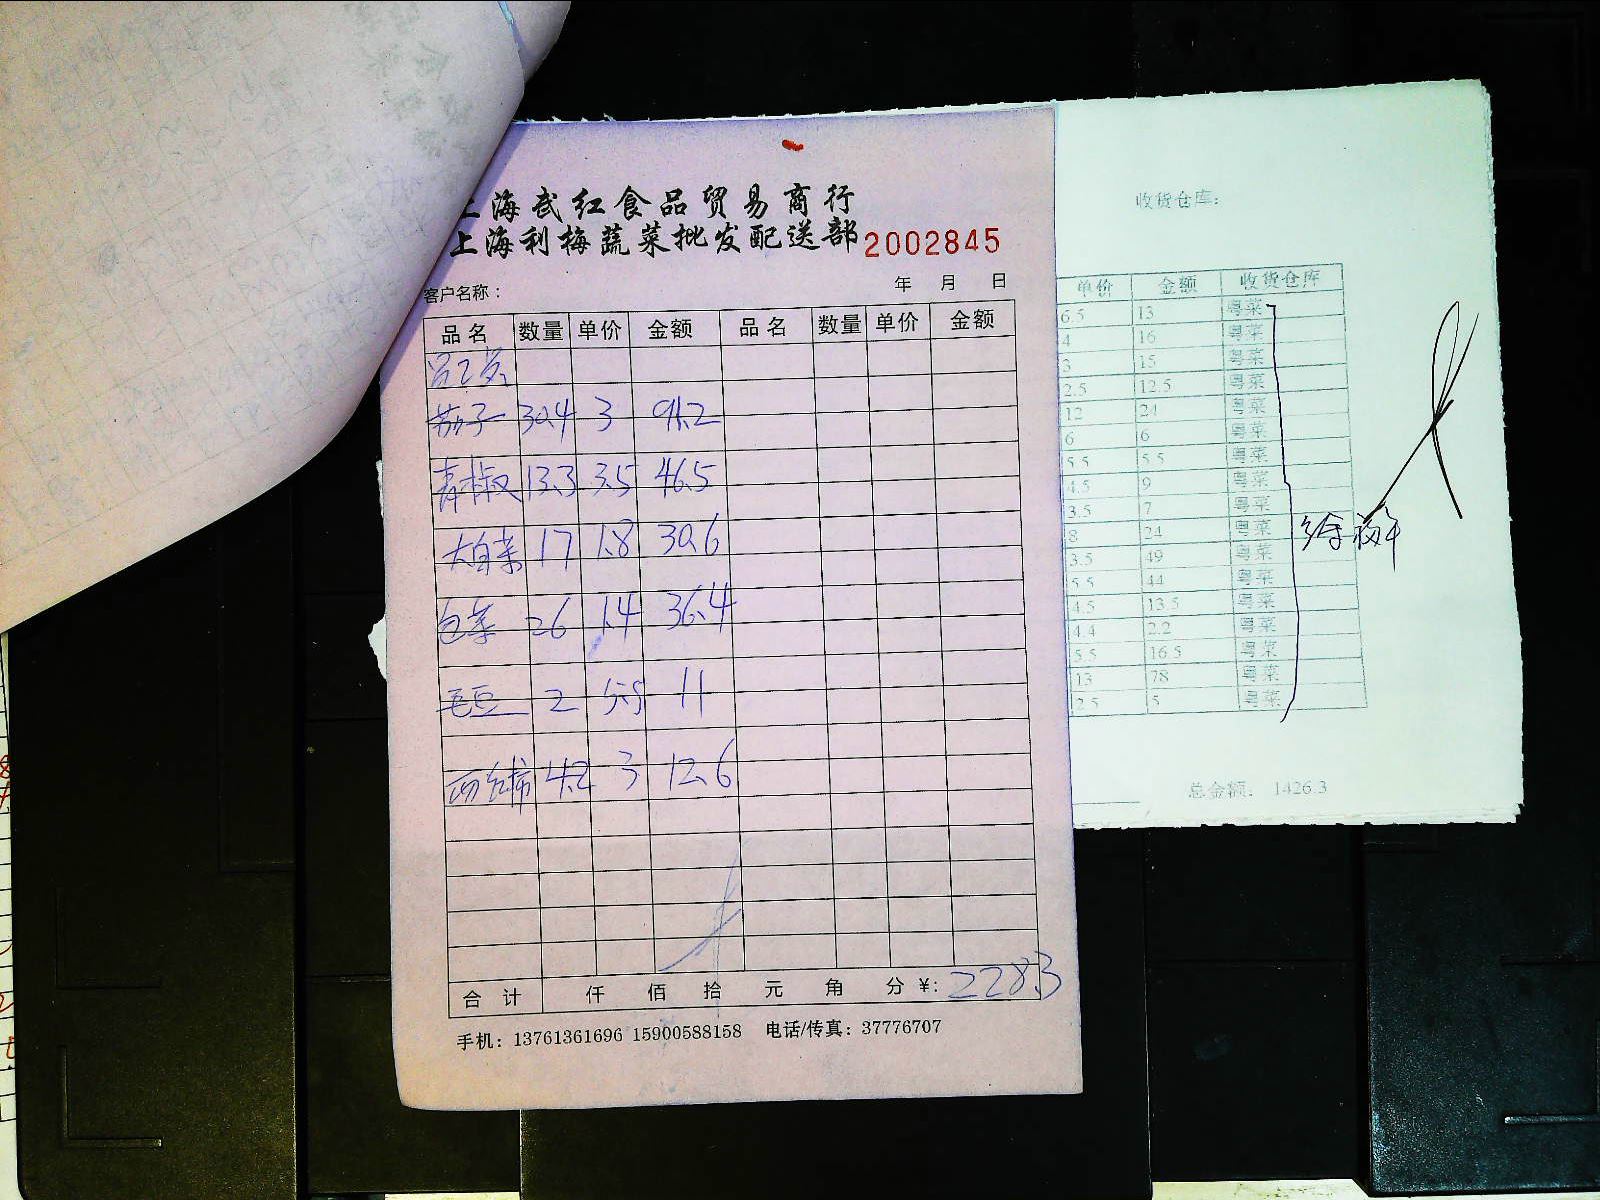 上海武红食品贸易商行
上海利梅蔬菜批发配送部 2002845
客户名称： 年 月 日
品名 数量 单价 金额 品名 数量 单价 金额
茄子 30.4 3 91.2
青椒 13.3 3.5 46.5
大白菜 17 1.8 30.6
包菜 26 1.4 36.4
毛豆 2 5.5 11
西红柿 4.2 3 12.6
合计 仟 佰 拾 元 角 分 ¥: 228.3
手机：13761361696 15900588158 电话/传真：37776707
收货仓库：
单价 金额 收货仓库
6.5 13 粤菜
4 16 粤菜
3 15 粤菜
2.5 12.5 粤菜
12 24 粤菜
6 6 粤菜
5.5 5.5 粤菜
4.5 9 粤菜
3.5 7 粤菜
8 24 粤菜
3.5 49 粤菜
5.5 44 粤菜
4.5 13.5 粤菜
4.4 2.2 粤菜
5.5 16.5 粤菜
13 78 粤菜
2.5 5 粤菜
总金额： 1426.3